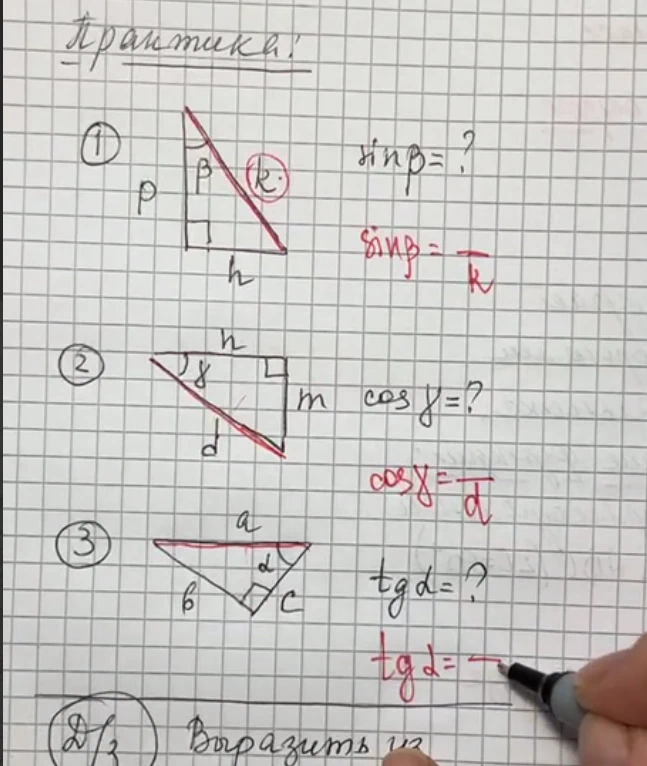 Практика!
1
β
k
p
h
sinβ = ?
sinβ = — k
2
n
γ
m
d
cos γ = ?
cosγ = — d
3
a
α
b c
tg α = ?
tg α = —
Д/з Выразить из